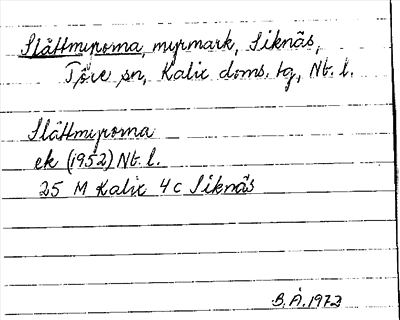 Slåttmyroma, myrmark, Siknäs,
Töre sn, Kalix doms. tg, Nb. l.
Slåttmyroma
ek (1952) Nb. l.
25 M Kalix 4c Siknäs
B. Å. 1972